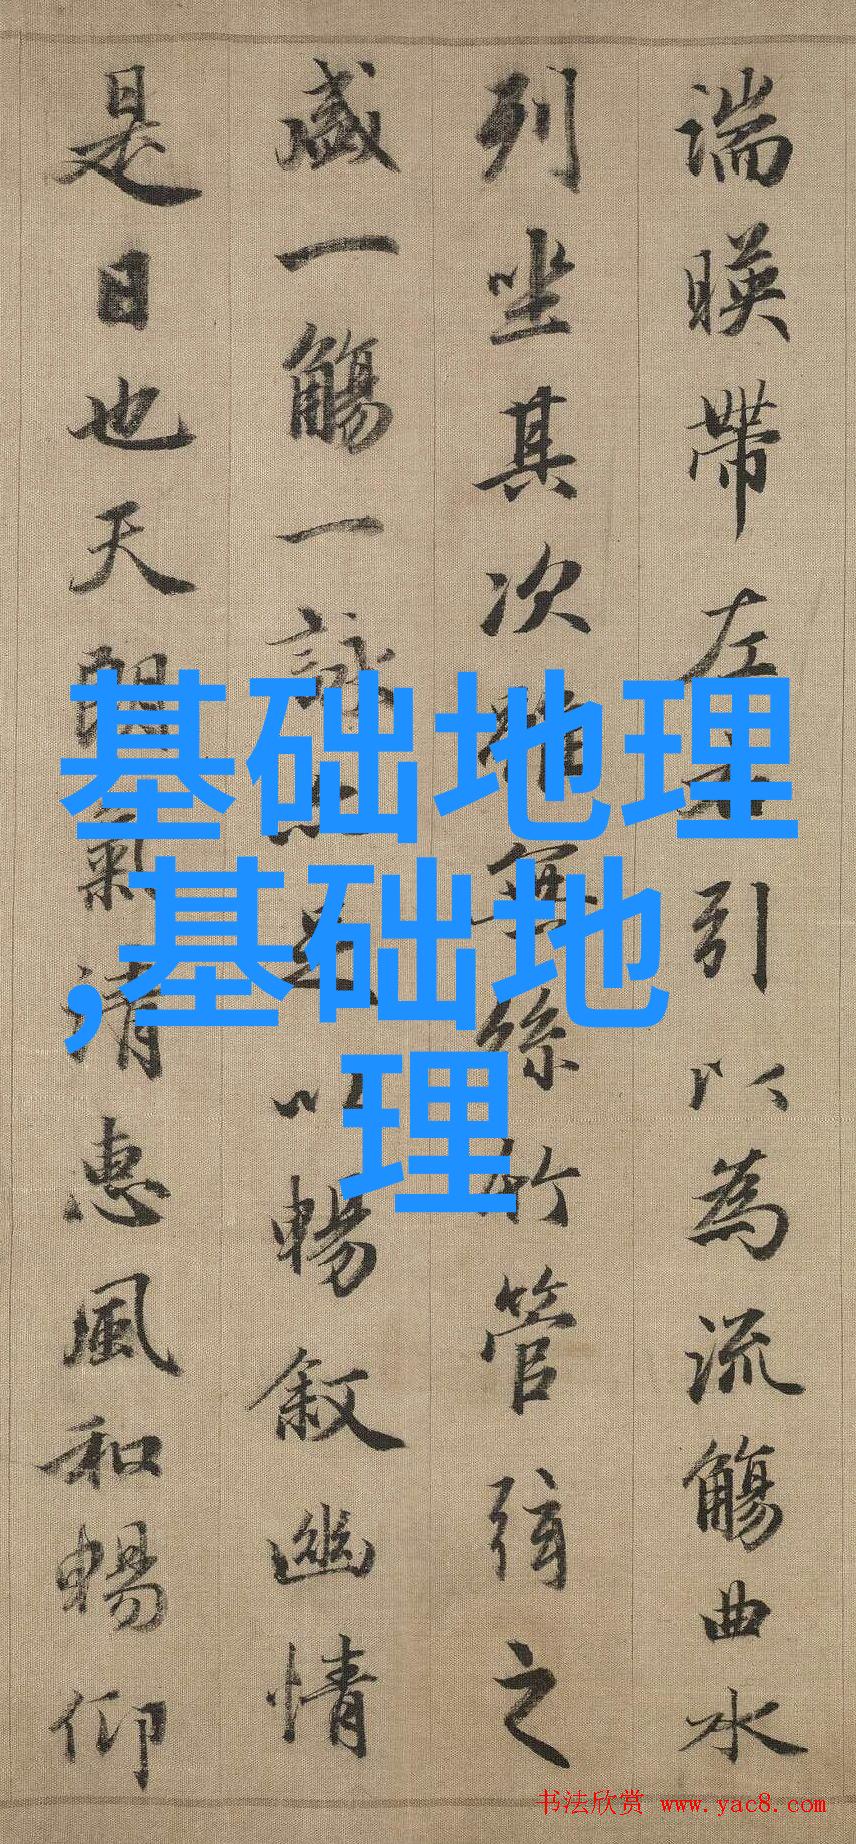 湍暎帶左右引以為流觴曲水
列坐其次雖無絲竹管弦之
盛一觴一詠亦足以暢叙幽情
是日也天朗氣清惠風和暢仰
基础地理
,基础地
理
书法欣赏 www.yac8.com